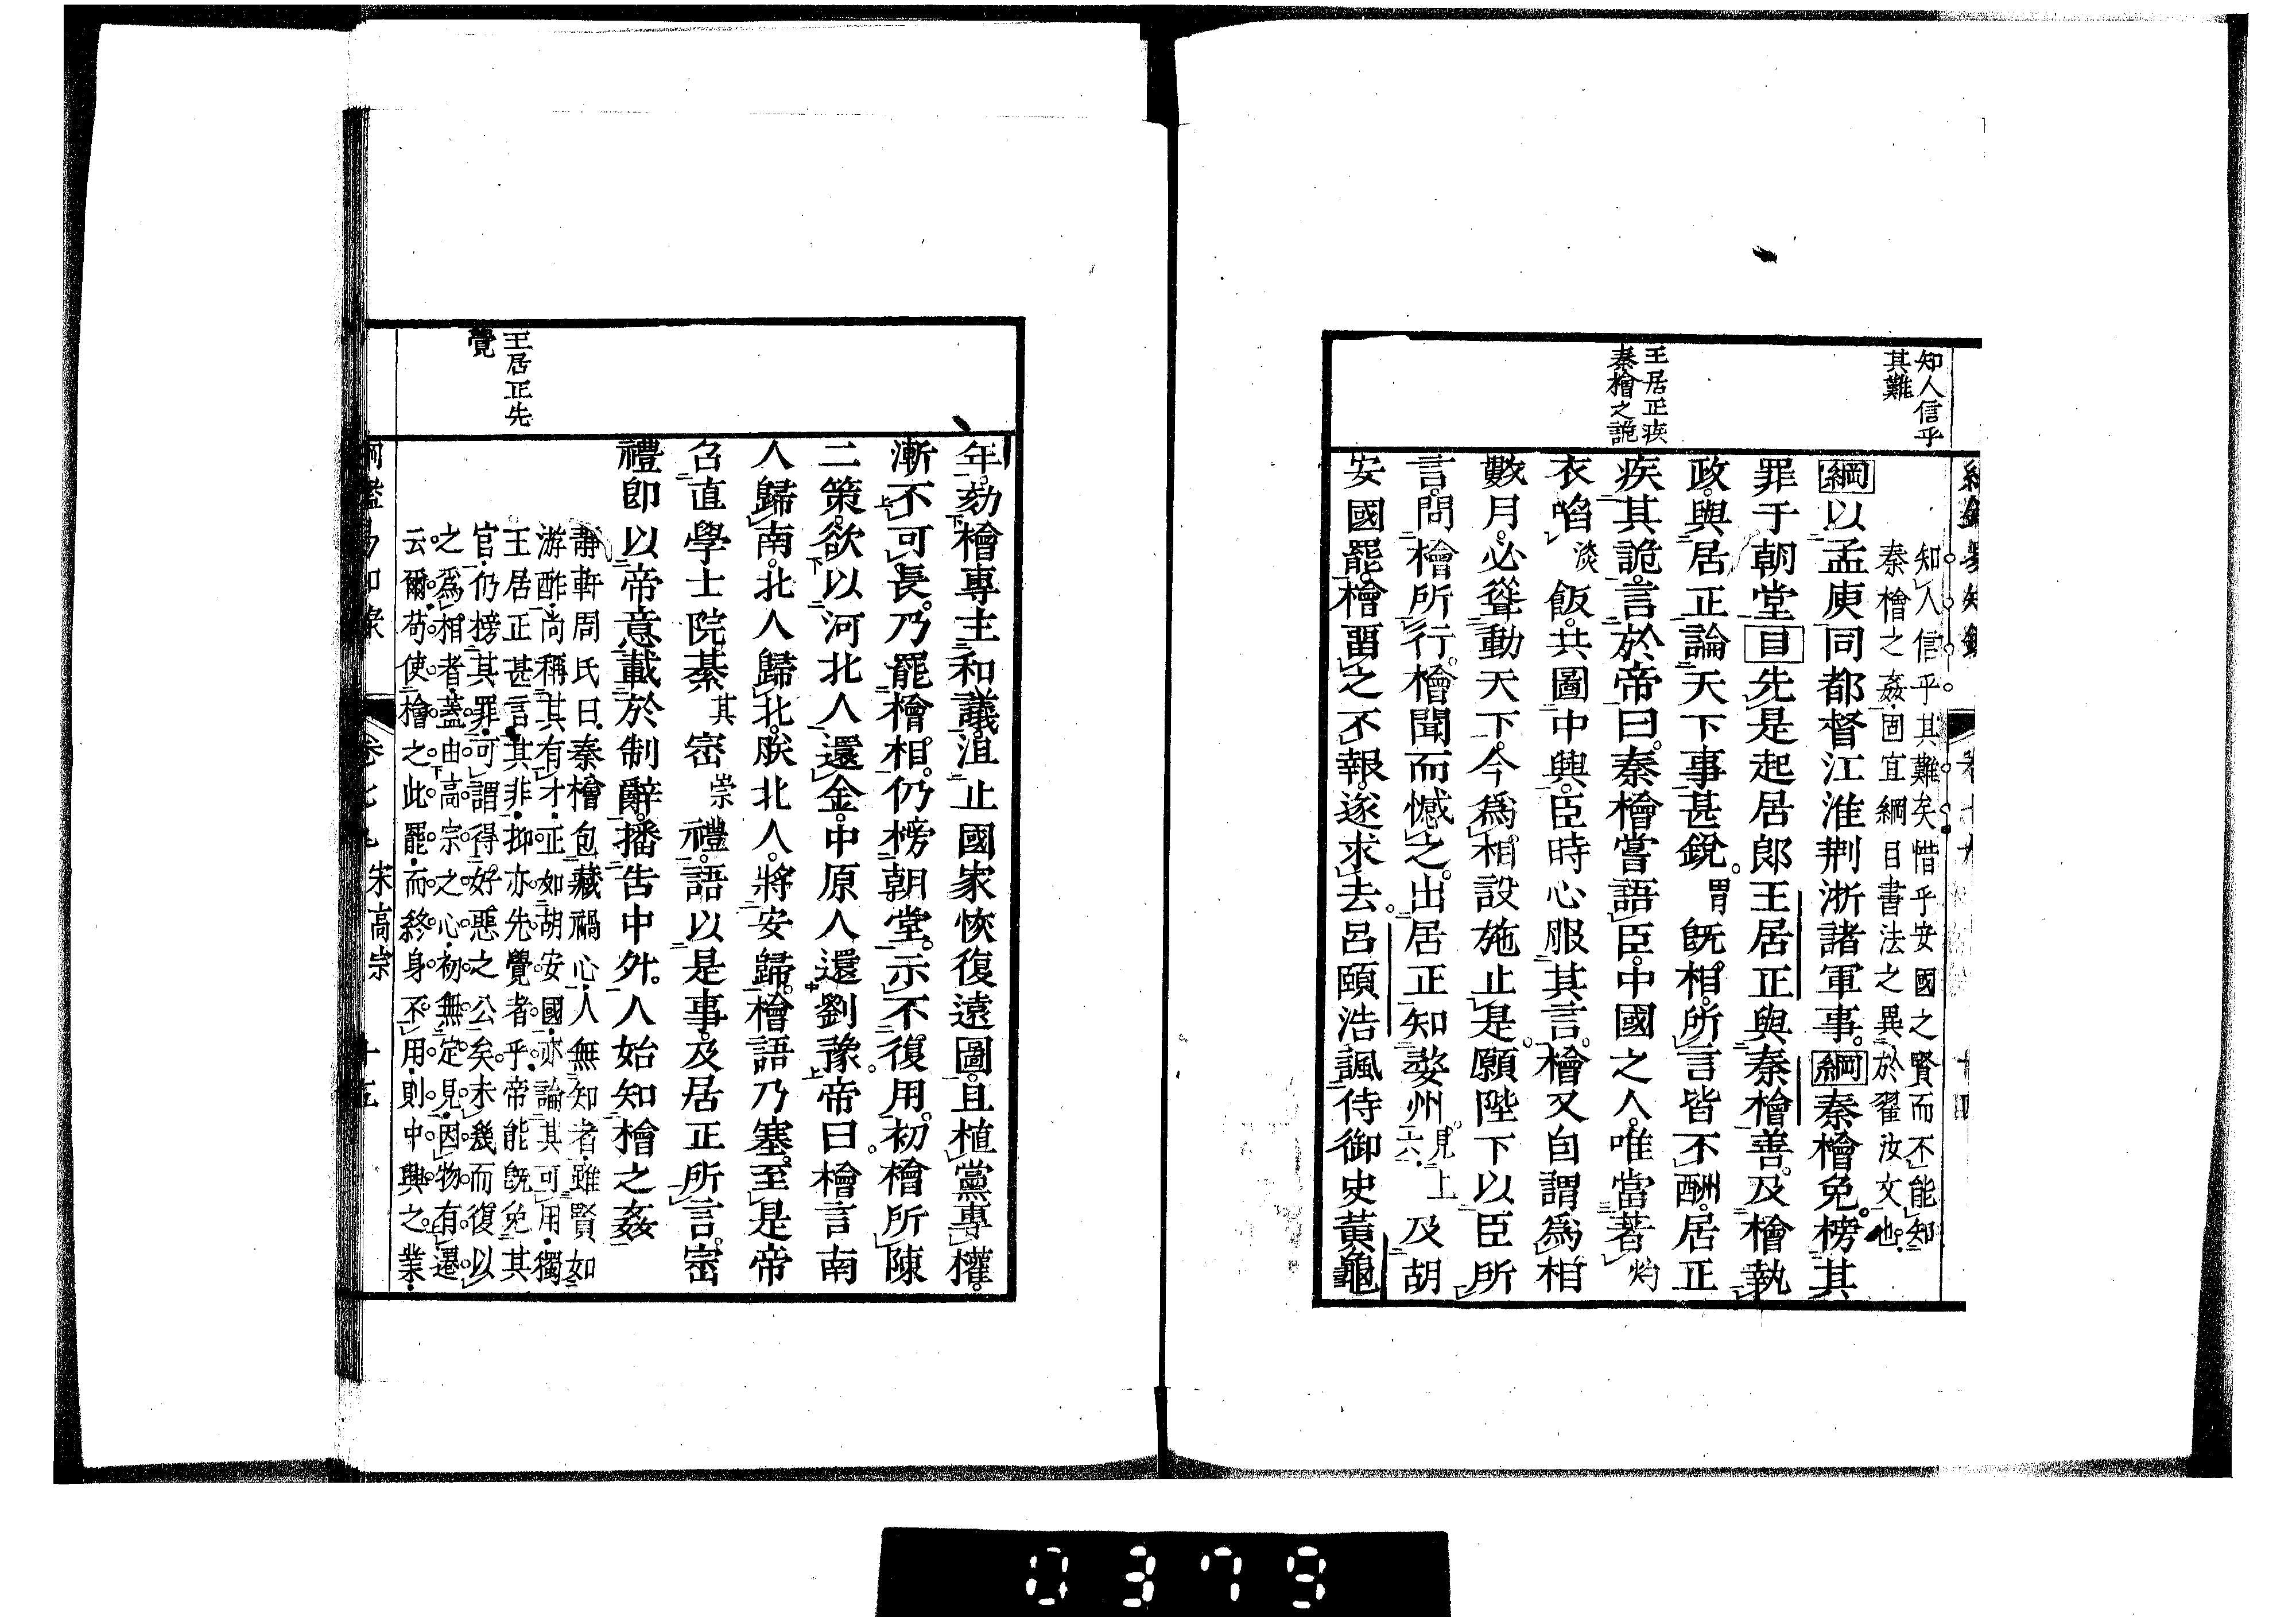 知人信乎
其難
王居正疾
秦檜之詭
知人信乎其難矣惜乎安國之賢而不能知
秦檜之姦固宜綱目書法之異於翟汝文也
綱以孟庾同都督江淮荆浙諸軍事綱秦檜免榜其
罪于朝堂目先是起居郎王居正與秦檜善及檜執
政與居正論天下事甚銳胃既相所言皆不酬居正
疾其詭言於帝曰秦檜嘗語臣中國之人唯當著灼
衣啗淡飯共圖中興臣時心服其言檜又自謂爲相
數月必聳動天下今爲相設施止是願陛下以臣所
言問檜所行檜聞而憾之出居正知婺州見上六及胡
安國罷檜畱之不報遂求去呂頤浩諷侍御史黃龜
王居正先
覺
年劾檜專主和議沮止國家恢復遠圖且植黨專權
漸不可長乃罷檜相仍榜朝堂示不復用初檜所陳
二策欲以河北人還金中原人還劉豫帝曰檜言南
人歸南北人歸北朕北人將安歸檜語乃塞至是帝
召直學士院綦其崈崇禮語以是事及居正所言崈
禮即以帝意載於制辭播告中外人始知檜之姦
靜軒周氏曰秦檜包藏禍心人無知者雖賢如
游酢尚稱其有才正如胡安國亦論其可用獨
王居正甚言其非抑亦先覺者乎帝能既免其
官仍榜其罪可謂得好惡之公矣未幾而復以
之爲相者蓋由高宗之心初無定見因物有遷
云爾苟使檜之此罷而終身不用則中興之業
宋高宗
0379